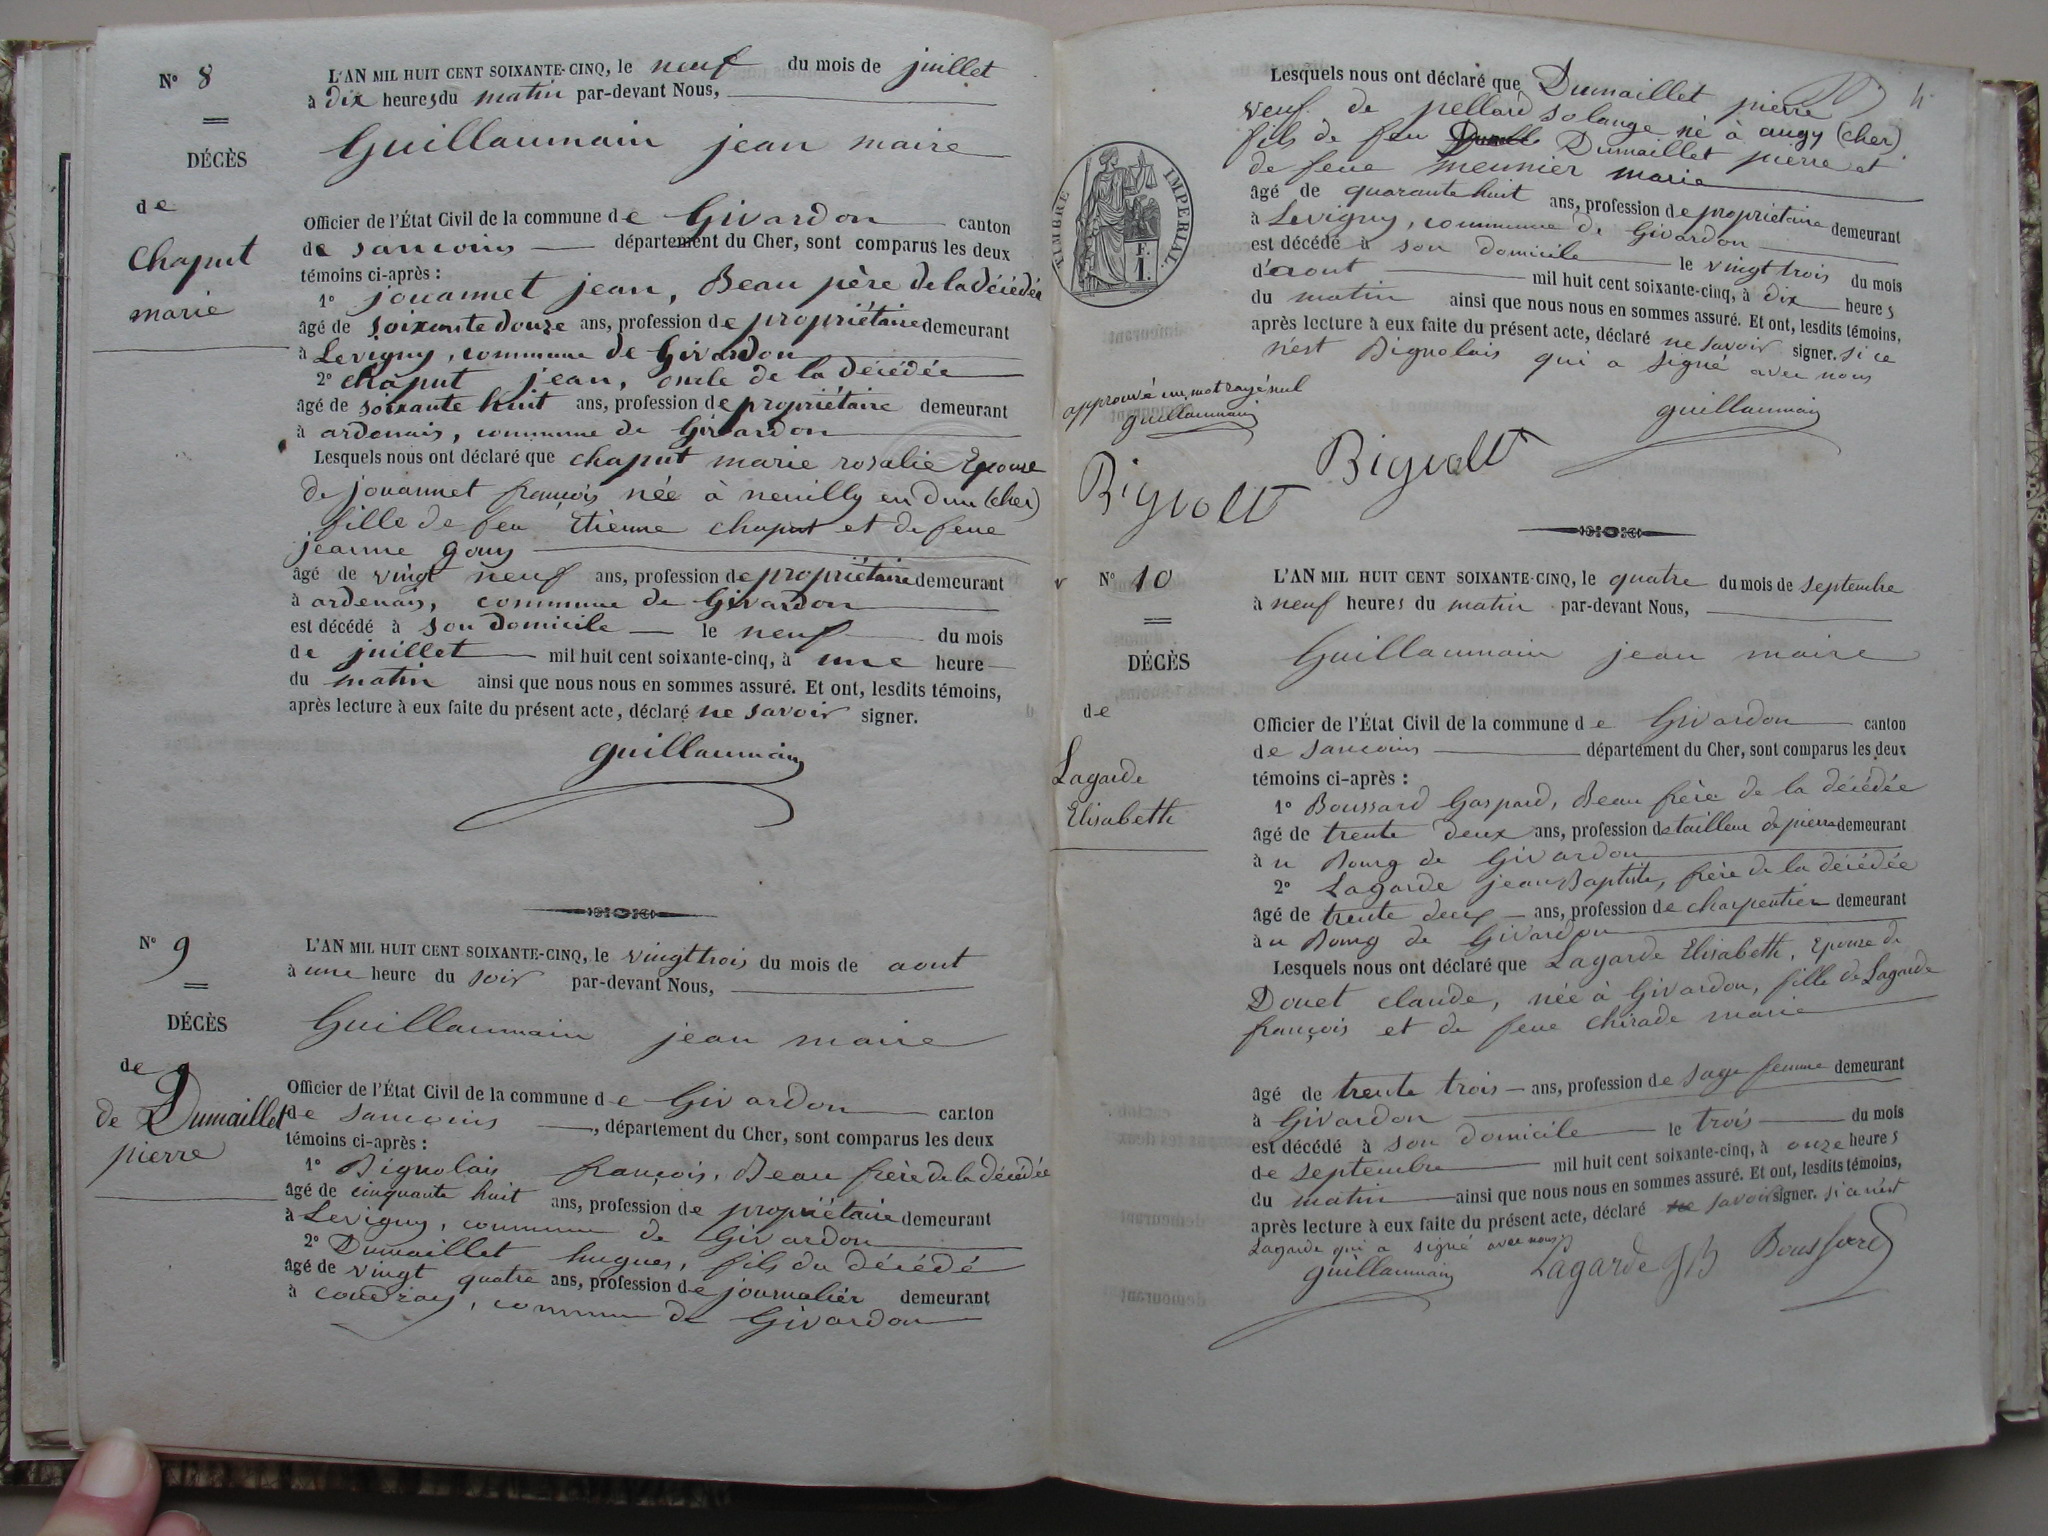 N° 8
DÉCÈS
de
Chaput
marie
L'AN MIL HUIT CENT SOIXANTE-CINQ, le neuf du mois de juillet
à dix heures du matin par-devant Nous,
Guillaumain jean maire
Officier de l'État Civil de la commune de Givardon canton
de sancoins département du Cher, sont comparus les deux
témoins ci-après :
1° jouannet jean, Beau père de la décédée
âgé de soixante douze ans, profession de propriétaire demeurant
à Levigny, commune de Givardon
2° chaput jean, oncle de la décédée
âgé de soixante huit ans, profession de propriétaire demeurant
à ardenais, commune de Givardon
Lesquels nous ont déclaré que chaput marie rosalie Epouse
de jouannet françois née à neuilly en dun (cher)
fille de feu Etienne chaput et de feue
jeanne gouy
âgé de vingt neuf ans, profession de propriétaire demeurant
à ardenais, commune de Givardon
est décédé à son domicile le neuf du mois
de juillet mil huit cent soixante-cinq, à une heure
du matin ainsi que nous nous en sommes assuré. Et ont, lesdits témoins,
après lecture à eux faite du présent acte, déclaré ne savoir signer.
guillaumain
N° 9
DÉCÈS
de
de Dumaillet
pierre
L'AN MIL HUIT CENT SOIXANTE-CINQ, le vingt trois du mois de aout
à une heure du soir par-devant Nous,
Guillaumain jean maire
Officier de l'État Civil de la commune de Givardon canton
de sancoins, département du Cher, sont comparus les deux
témoins ci-après :
1° Bignolais françois, Beau frère de la décédée
âgé de cinquante huit ans, profession de propriétaire demeurant
à Levigny, commune de Givardon
2° Dumaillet hugues, fils du décédé
âgé de vingt quatre ans, profession de journalier demeurant
à coudray, commune de Givardon
Lesquels nous ont déclaré que Dumaillet pierre
veuf de pellard solange né à augy (cher)
fils de feu Dumaillet pierre et
de feue meunier marie
âgé de quarante huit ans, profession de propriétaire demeurant
à Levigny, commune de Givardon
est décédé à son domicile le vingt trois du mois
d'aout mil huit cent soixante-cinq, à dix heures
du matin ainsi que nous nous en sommes assuré. Et ont, lesdits témoins,
après lecture à eux faite du présent acte, déclaré ne savoir signer. si ce
n'est Bignolais qui a signé avec nous
TIMBRE IMPERIAL.
F.
1.
approuvé un mot rayé nul
guillaumain
guillaumain
N° 10
DÉCÈS
de
Lagarde
Elisabeth
L'AN MIL HUIT CENT SOIXANTE-CINQ, le quatre du mois de septembre
à neuf heures du matin par-devant Nous,
Guillaumain jean maire
Officier de l'État Civil de la commune de Givardon canton
de sancoins département du Cher, sont comparus les deux
témoins ci-après :
1° Boussard Gaspard, Beau frère de la décédée
âgé de trente deux ans, profession de tailleur de pierre demeurant
à u Bourg de Givardon
2° Lagarde jean Baptiste, frère de la décédée
âgé de trente deux ans, profession de charpentier demeurant
à u Bourg de Givardon
Lesquels nous ont déclaré que Lagarde Elisabeth, Epouse de
Douet claude, née à Givardon, fille de Lagarde
françois et de feue chirade marie
âgé de trente trois ans, profession de sage femme demeurant
à Givardon
est décédé à son domicile le trois du mois
de septembre mil huit cent soixante-cinq, à onze heures
du matin ainsi que nous nous en sommes assuré. Et ont, lesdits témoins,
après lecture à eux faite du présent acte, déclaré ne savoir signer. si ce n'est
Lagarde qui a signé avec nous
guillaumain Lagarde JB